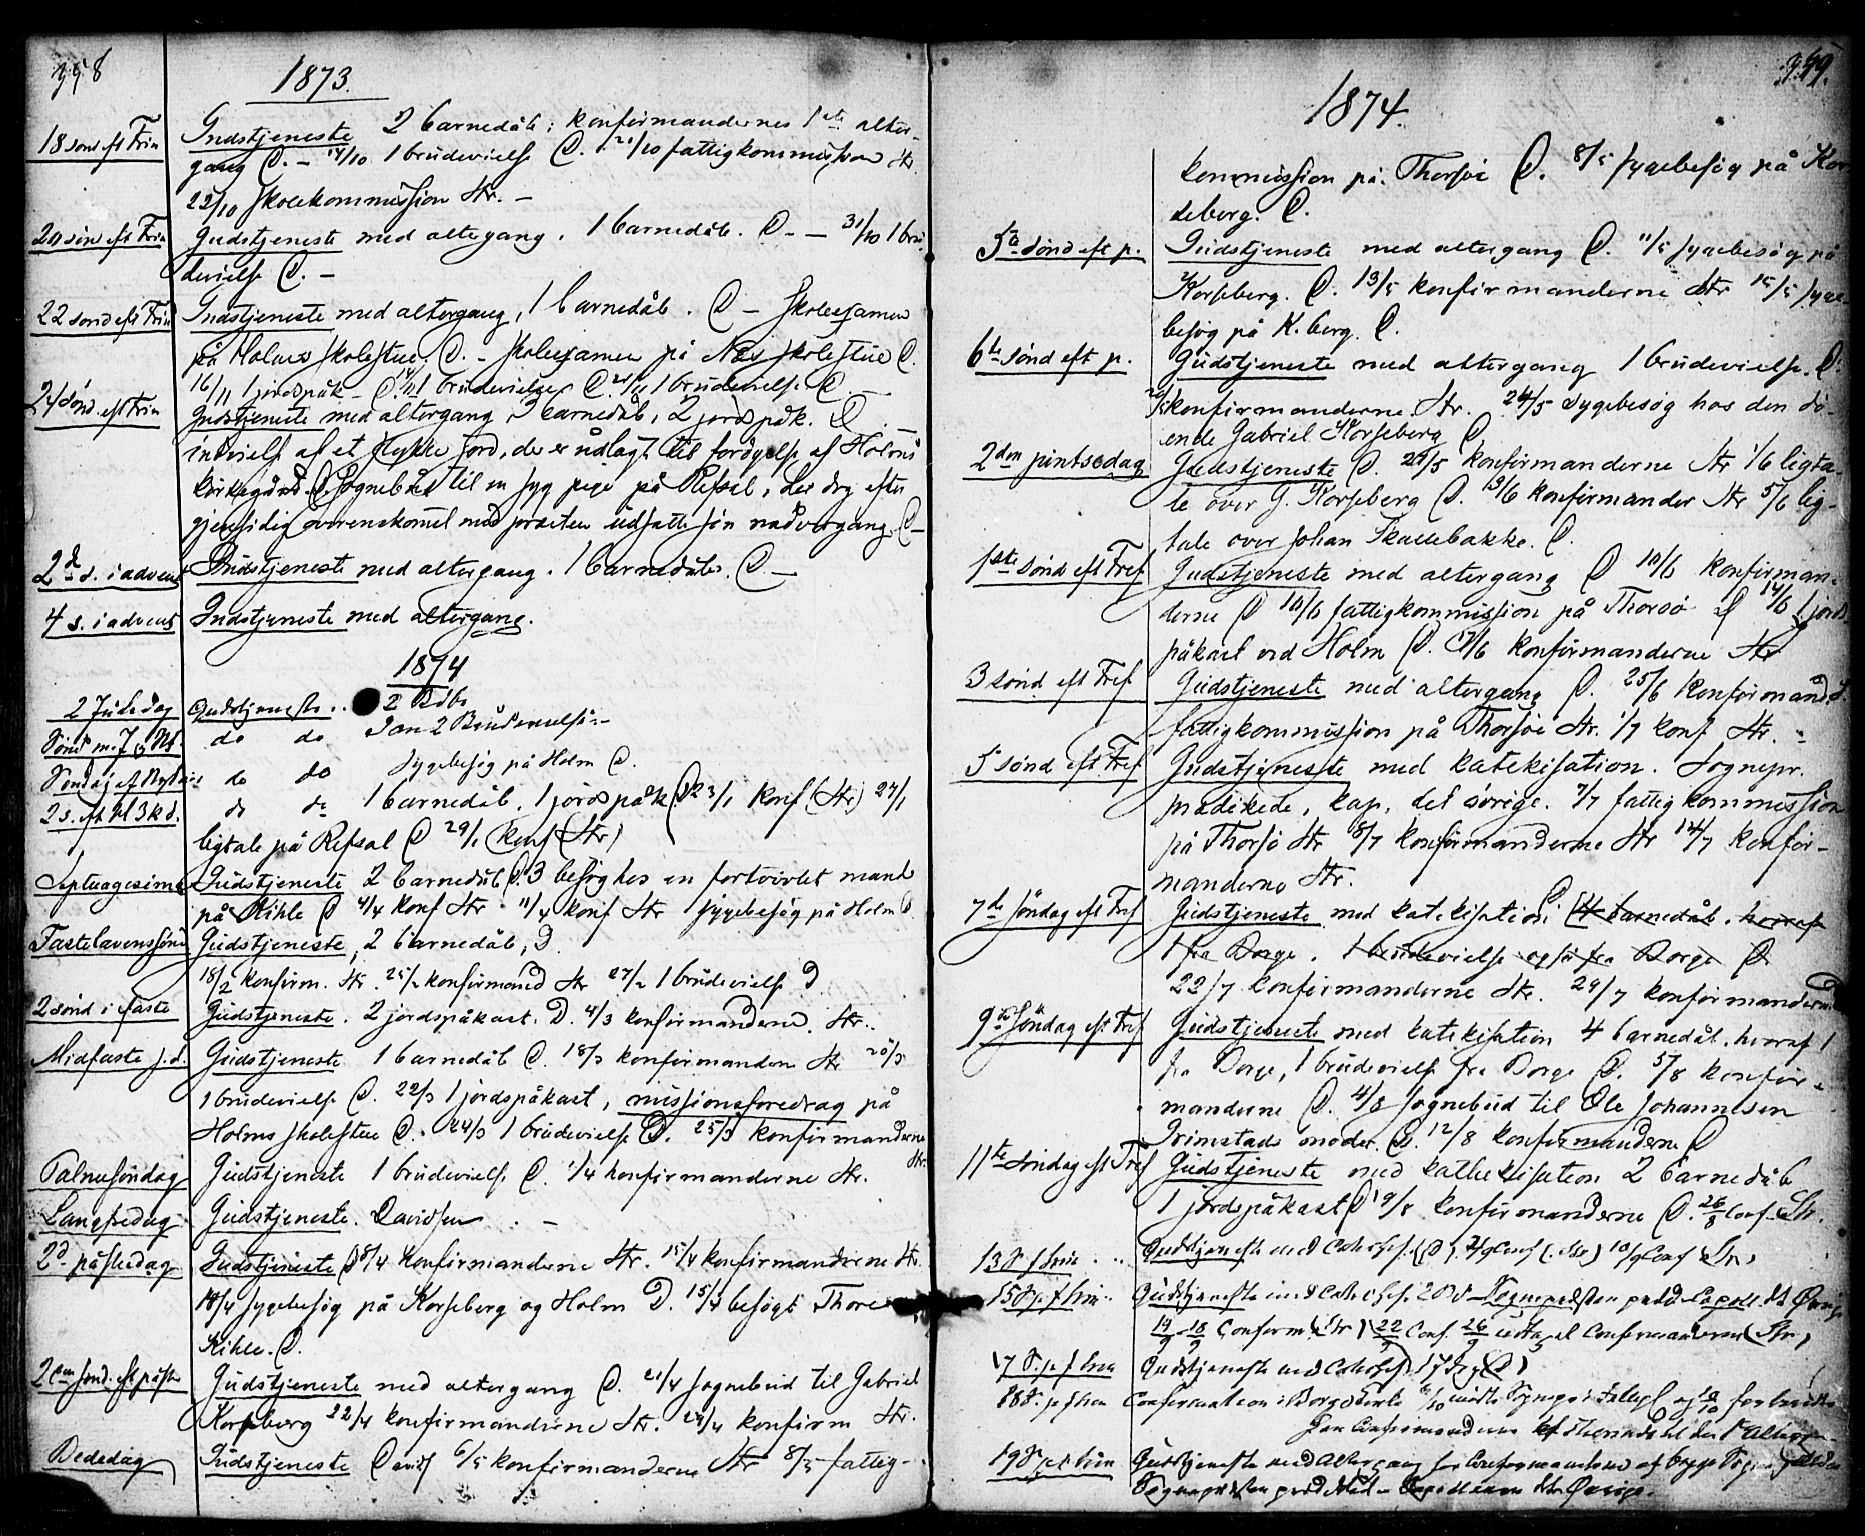 358
1873.
18 sønd eft Trin
Gudstjeneste 2 barnedåb; konfirmandernes 1ste alter-
gang D. – 14/10 1 brudevielse D. 21/10 fattigkommission Str.
22/10 skolekommission Str. –
20 sønd eft Trin
Gudstjeneste med altergang. 1 barnedåb. D. – 31/10 1 bru
devielse D. –
22 sønd eft Trin
Gudstjeneste med altergang, 1 barnedåb. D – Skoleexamen
på Holms skolestue. D. – skoleexamen på Næs skolestue D.
16/11 1 jordspåk – D. 1 brudevielse D. 21/11 1 brudevielse D. –
24 sønd. eft Trin
Gudstjeneste med altergang, 3 barnedåb, 2 jordspåk. D –
indvielse af et stykke jord, der er udlagt til forøgelse af Holms
kirkegård D. Sognebud til en syg pige på Refsal, der dog efter
gjensidig overenskomst med præsten udsatte sin nadvergang D –
2d s. i advent
Gudstjeneste med altergang. 1 barnedåb. D –
4 s. i advent
Gudstjeneste med altergang.
1874
2 Juledag
Gudstjeneste .. 2 Bdb
Sønd m. J og Nt.
do do Jan 2 Brudevielse –
Søndag ef Nytår
do do Sygebesøg på Holm D.
2 s. eft H 3 k d.
do do 1 barnedåb. 1 jordspåk D 23/1 Konf (Str) 27/1
ligtale på Refsal D 29/1 (Konf (Str)
Septuagesima
Gudstjeneste 2 barnedåb D. 3 besøg hos en fortvivlet mand
på Kihle D 4/4 konf Str. 11/4 konf Str sygebesøg på Holm D
Fastelavenssønd
Gudstjeneste, 2 barnedåb, D.
18/2 konfirm. Str. 25/2 konfirmand Str 27/2 1 brudevielse D
2 sønd i faste
Gudstjeneste. 2 jordspåkast. D. 4/3 konfirmanderne. Str.
Midfaste s.d.
Gudstjeneste 1 barnedåb D. 18/3 konfirmanden Str 20/3
1 brudevielse D. 22/3 1 jordspåkast, missionsforedrag på
Holms skolestue D. 24/3 1 brudevielse D. 25/3 konfirmanderne
Str.
Palmesøndag
Gudstjeneste 1 brudevielse D. 1/4 konfirmanderne Str.
Langfredag
Gudstjeneste. Davidsen . –
2d påskedag
Gudstjeneste D 8/4 konfirmanderne Str. 15/4 konfirmanderne Str.
18/4 sygebesøg på Korseberg og Holm D. 15/4 besøgt Thore
Kihle. D.
2den sønd. eft påske
Gudstjeneste med altergang D. 21/4 sognebud til Gabriel
Korseberg 22/4 konfirmanderne Str. 29/4 konfirm Str.
Bededag
Gudstjeneste David 6/5 konfirmanderne Str 8/5 fattig-
359.
1874.
kommission på Thorsøe D. 8/5 sygebesøg på Kor
seberg. D.
5te sønd eft p.
Gudstjeneste med altergang D. 11/5 sygebesøg på
Korseberg. D. 13/5 konfirmanderne Str 15/5 syge
besøg på K. berg. D.
6te sønd eft p.
Gudstjeneste med altergang 1 brudevielse. D.
konfirmanderne. Str. 24/5 sygebesøg hos den dø-
ende Gabriel Korseberg D
2den pintsedag
Gudstjeneste D. 27/5 konfirmanderne Str 1/6 ligta-
le over G. Korseberg D. 3/6 konfirmander Str 5/6 lig-
tale over Johan Skallebakke. D.
1ste sønd eft Tref
Gudstjeneste med altergang D 10/6 konfirman-
derne D 10/6 fattigkommission på Thorsø D 14/6 1 jords
påkast ved Holm D. 17/6 konfirmanderne Str
3 sønd eft Tref
Gudstjeneste med altergang D. 25/6 konfirmand.
fattigkommission på Thorsøe Str. 1/7 konf Str. –
5 sønd eft Tref
Gudstjeneste med katekisation. Sognepr.
prædikede, kap. det øvrige. 7/7 fattigkommission
på Thorsø Str 8/7 konfirmanderne Str 14/7 konfir-
manderne Str.
7de søndag eft Tref
Gudstjeneste med katekisation D (4 barnedåb. hvoraf
1 fra Borge. 1 brudevielse også fra Borge D.
22/7 konfirmanderne Str. 29/7 konfirmanderne D
9de søndag eft Tref
Gudstjeneste med katekisation 4 barnedåb. hvoraf 1
fra Borge, 1 brudevielse fra Borge D. 5/8 konfir-
manderne D. 4/8 sognebud til Ole Johannesen
Grimstads moder. D. 12/8 konfirmanderne D
11te søndag eft Tref
Gudstjeneste med kathekisation 2 barnedåb
1 jordspåkast D 19/8 konfirmanderne D. 26/8 Conf. Str.
13 S f trin . ..
Gudstjeneste med Catechis. (D). 2/9 Conf (Str) 10/9 Conf (Str)
15 S p f trin ..
Gudstjeneste med Catechis. 2 Bd. Sognepresten præd. Capell. det Øvrige
Conferm (Str) 22/9 Conf. 26/9 Confirmanderne (Str)
17 S. p f trin
Gudstjeneste med Catechis (D)
18 S. p f trin
Confirmation i Borge Kirke
19 S p f trin
Gudstjeneste med Altergang for Confirmanderne af begge Sogne
Sognepresten prædikede – Capellanen det Øvrige.